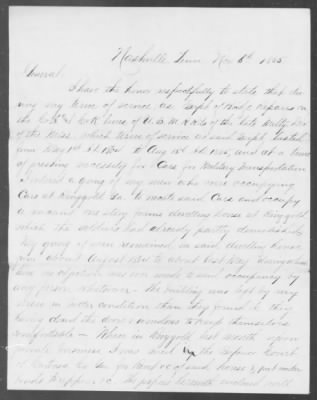 Nashville, Tenn Nov 6th 1865
General
I have the honor respectfully to state that dur
ing my term of service, as Supt of Road repairs on
the lines of U.S.M.R.Rds of the late Milty Div
of the Miss, which term of service as said Supt. lasted
from May 1st 1864 to Aug 1865, and at a time
of pressing necessity for Cars for Military Transportation
I ordered a gang of my men who were occupying
Cars at Ringgold Ga. to vacate said Cars and occupy
a vacant one story frame dwelling house at Ringgold
which the soldiers had already partly demolished
My gang of men remained in said dwelling house
from about August 1864 to about During
time no objection was ever made to said occupancy by
any person whatever. The building was left by my
men in better condition than they found it they
having closed the doors & windows to keep themselves
comfortable — When in Ringgold last month upon
private business I was sued in the Inferior Court
of Ga for Rent &c of said house & put under
bonds to appear &c. The papers herewith enclosed will